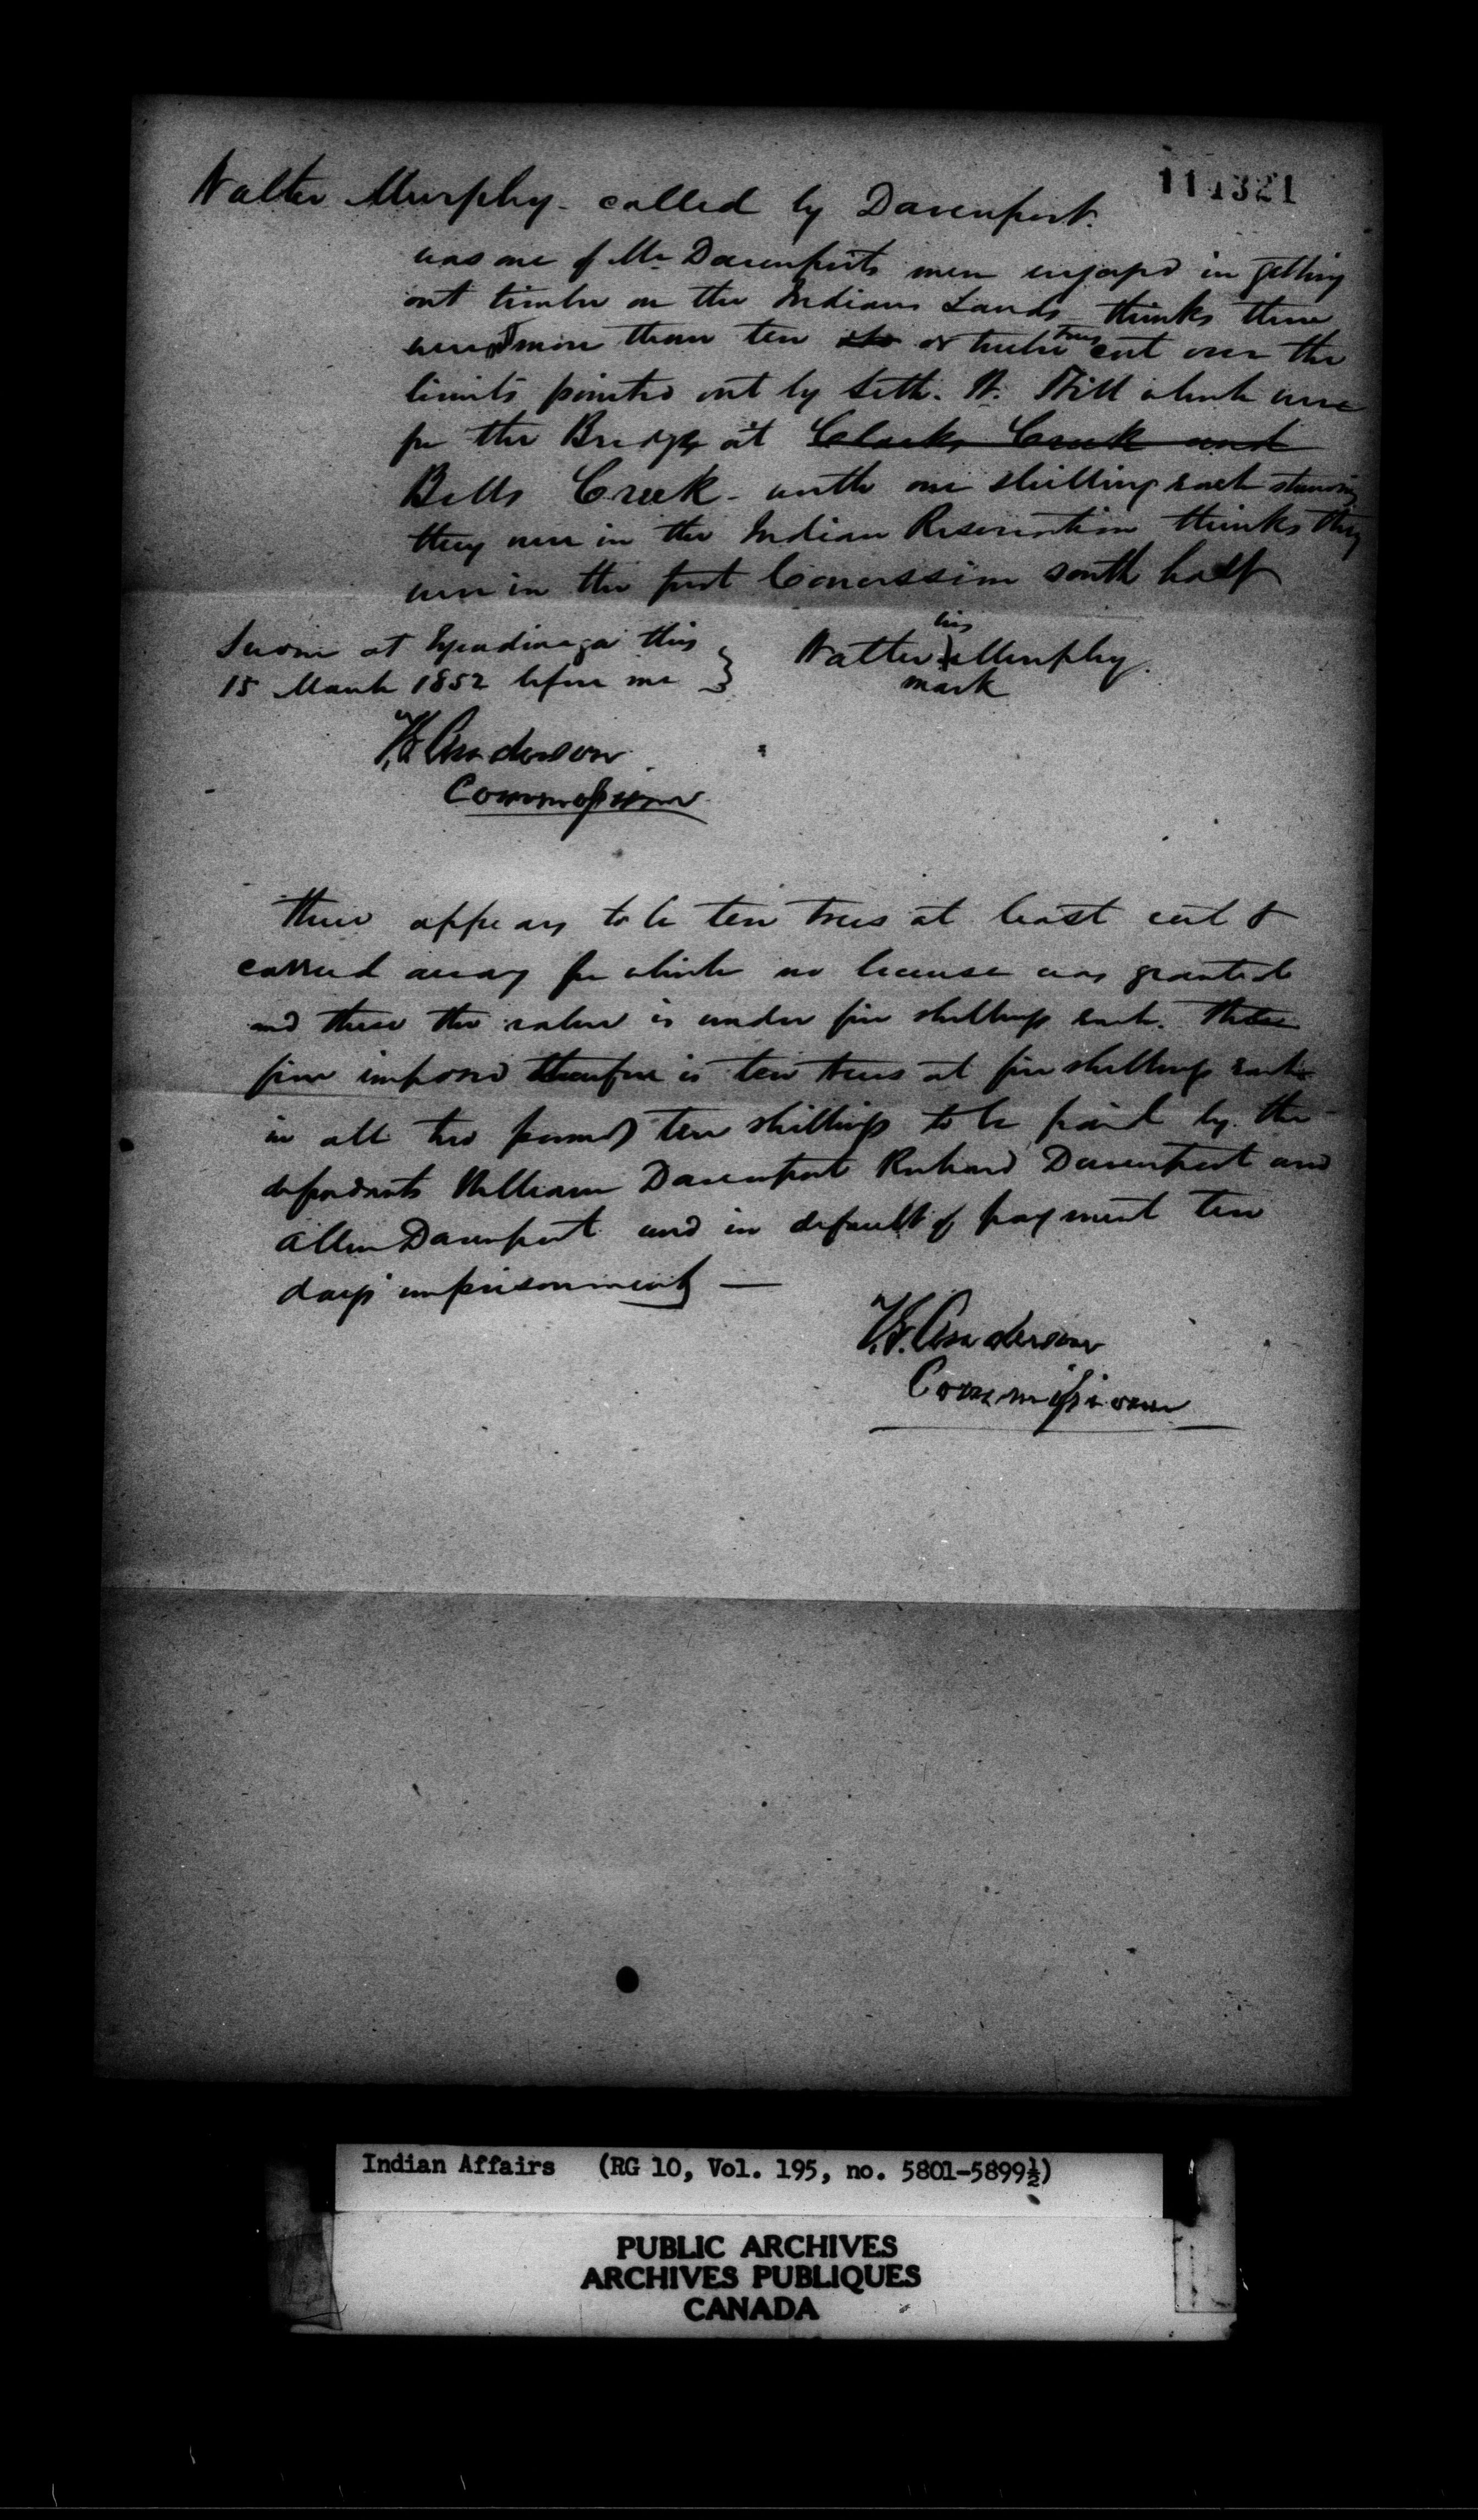 111321
Walter Murphy - called by Davenport.
was one of Mr Davenports men engaged in getting
out timber on the Indians Lands thinks there
were more than ten or twelve trees cut over the
limits pointed out by Seth. W. Hill which were
for the Bridge at Clarks Creek and
Bells Creek - worth one shilling each standing
they were in the Indian Reservation thinks they
were in the first Concession south half
Sworn at Tyendinaga this
15 March 1852 before me
his
Walter Murphy.
mark
T.G. Anderson
Commissioner
There appears to be ten trees at least cut &
carried away for which no license was granted
and these the value is under five shillings each. The
fine imposed therefore is ten trees at five shillings each
in all two pounds ten shillings to be paid by the
defendants William Davenport Richard Davenport and
Allen Davenport and in default of payment ten
days imprisonment —
T.G. Anderson
Commissioner
Indian Affairs (RG 10, Vol. 195, no. 5801-5899½)
PUBLIC ARCHIVES
ARCHIVES PUBLIQUES
CANADA